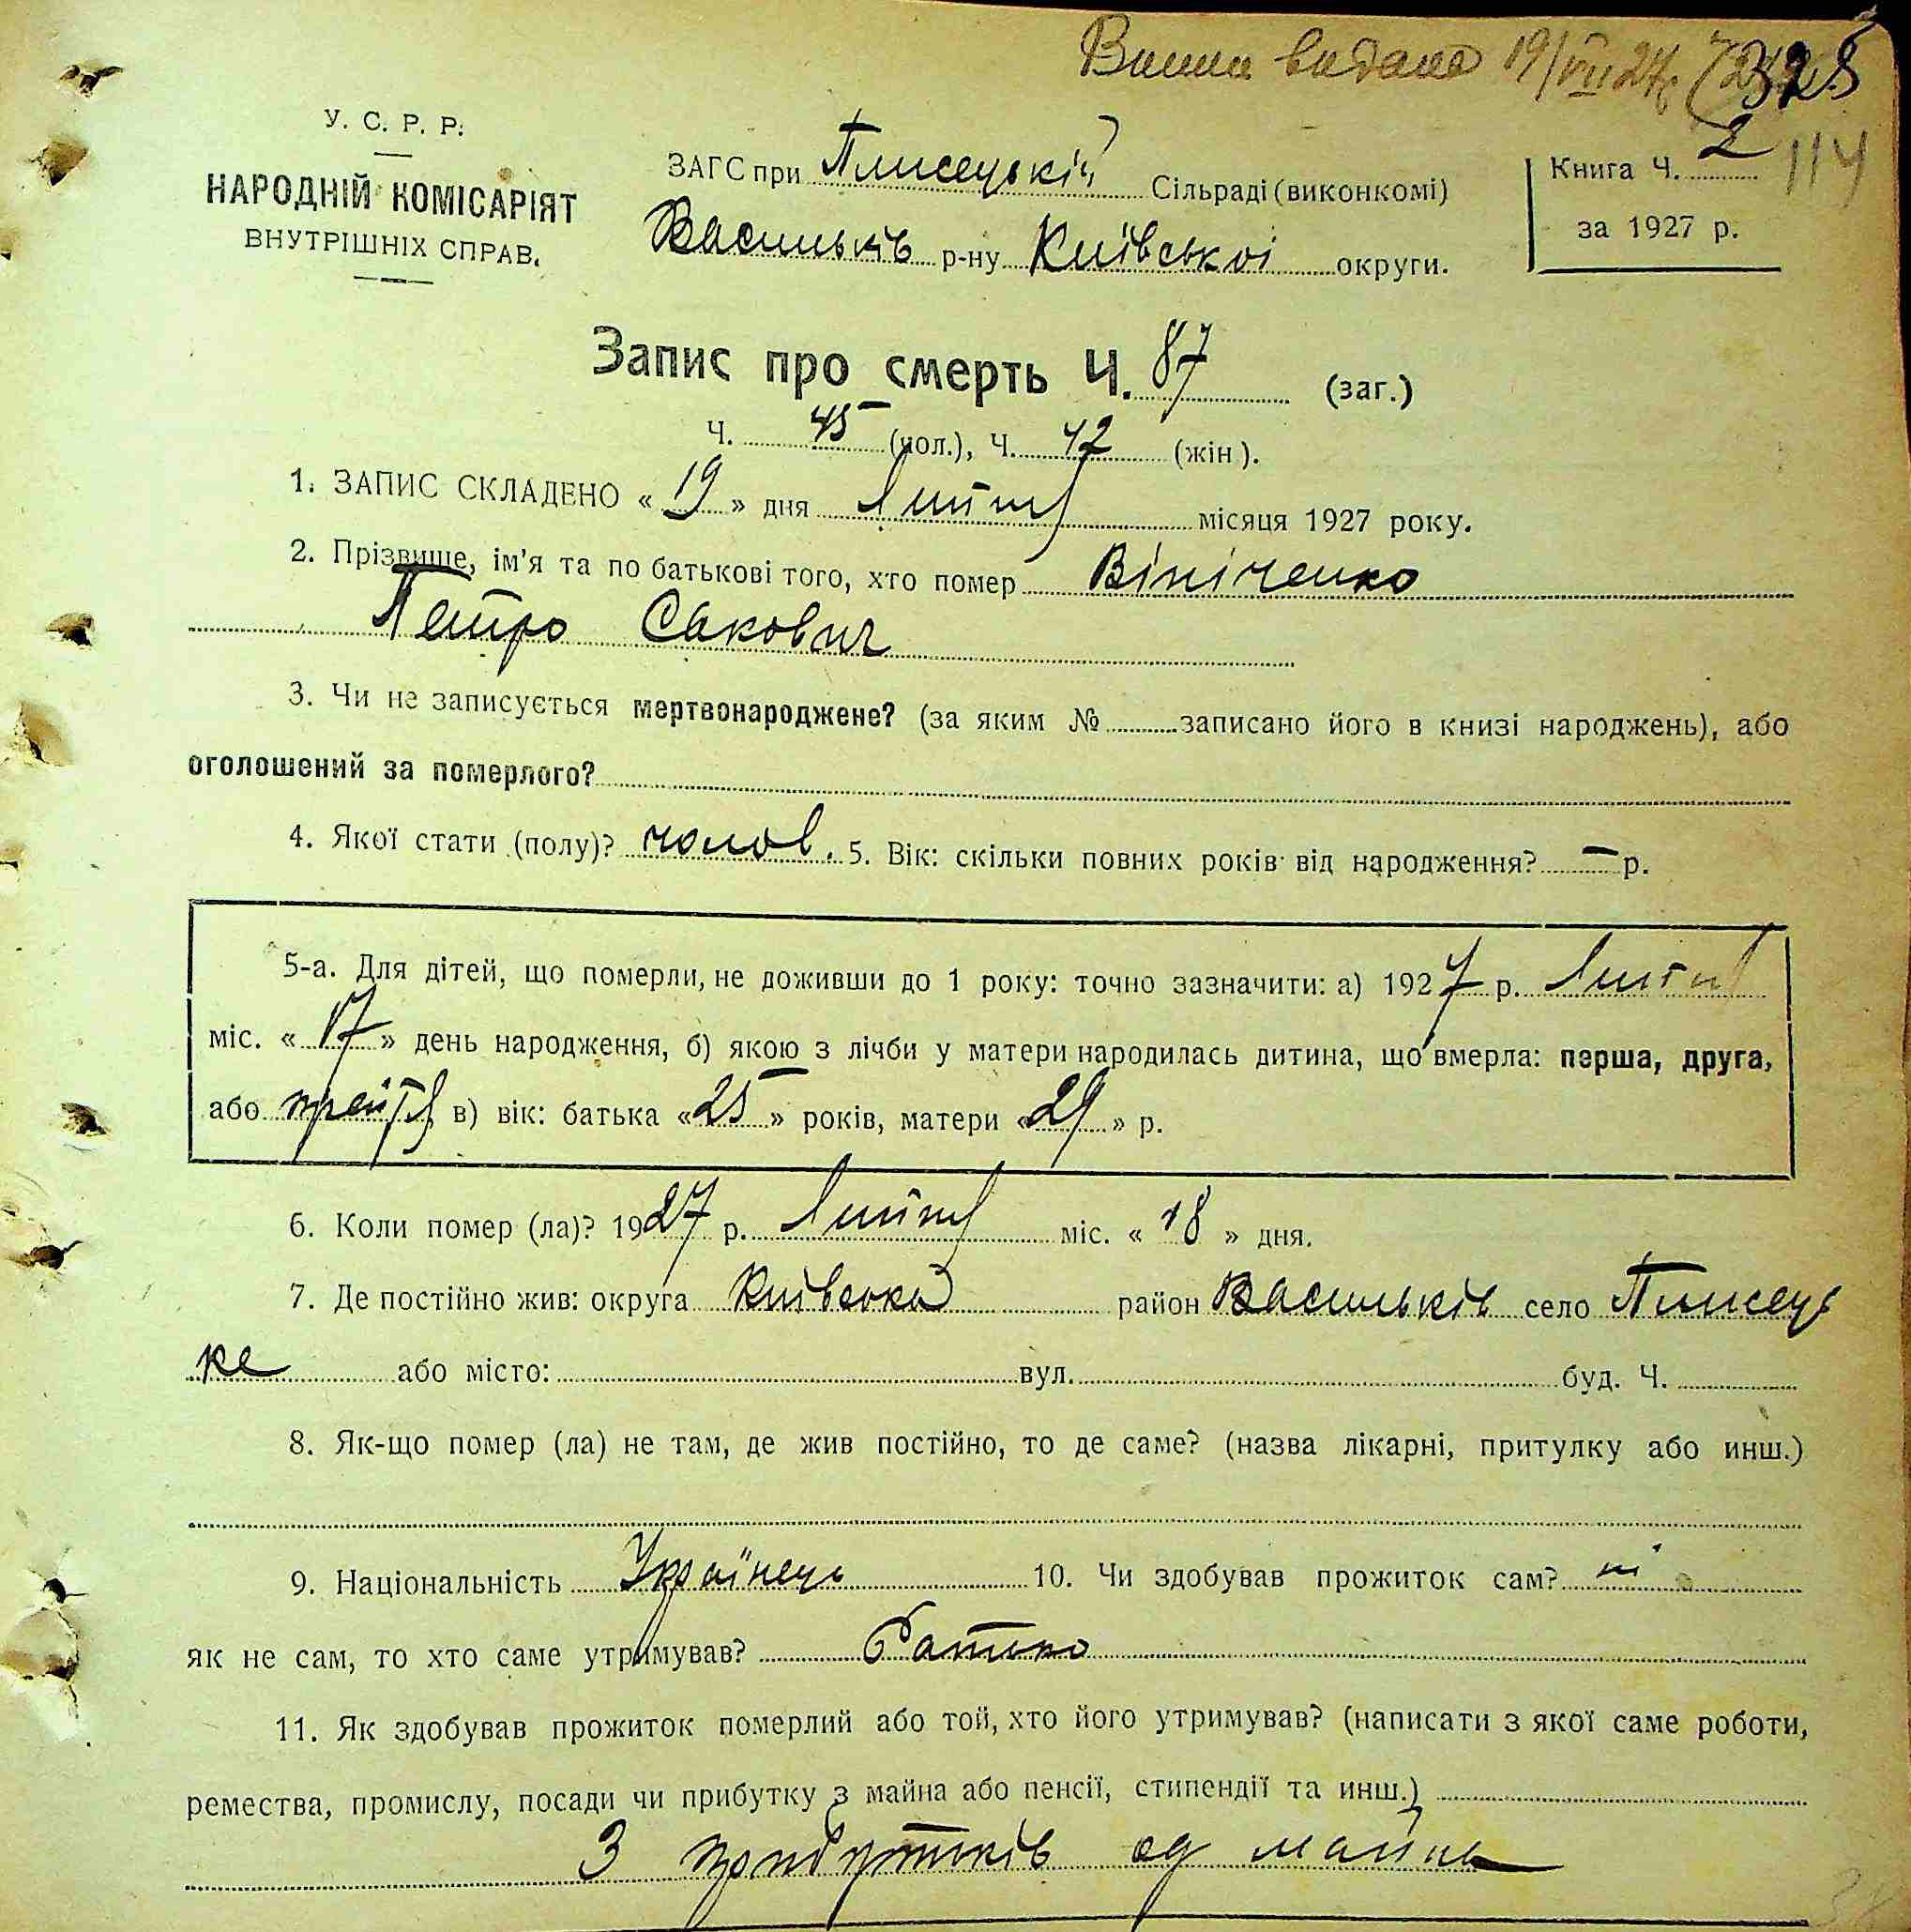 Випис видано 19/VII 27 р. 325
У. С. Р. Р.
НАРОДНІЙ КОМІСАРІЯТ
ВНУТРІШНІХ СПРАВ.
ЗАГС при Плисецькій Сільраді (виконкомі)
Васильків р-ну Київської округи.
Книга Ч. 2 114
за 1927 р.
Запис про смерть Ч. 87 (заг.)
Ч. 45 (чол.), Ч. 42 (жін).
1. ЗАПИС СКЛАДЕНО « 19 » дня Липня місяця 1927 року.
2. Прізвище, ім'я та по батькові того, хто помер Вініченко
Петро Сакович
3. Чи не записується мертвонароджене? (за яким № записано його в книзі народжень), або
оголошений за померлого?
4. Якої стати (полу)? чолов. 5. Вік: скільки повних років від народження? — р.
5-а. Для дітей, що померли, не доживши до 1 року: точно зазначити: а) 1927 р. Липня
міс. « 17 » день народження, б) якою з лічби у матери народилась дитина, що вмерла: перша, друга,
або третя в) вік: батька « 25 » років, матери « 29 » р.
6. Коли помер (ла)? 1927 р. Липня міс. « 18 » дня.
7. Де постійно жив: округа Київська район Васильків село Плисець
ке або місто: вул. буд. Ч.
8. Як-що помер (ла) не там, де жив постійно, то де саме? (назва лікарні, притулку або инш.)
9. Національність Українець 10. Чи здобував прожиток сам? ні
як не сам, то хто саме утримував? Батько
11. Як здобував прожиток померлий або той, хто його утримував? (написати з якої саме роботи,
ремества, промислу, посади чи прибутку з майна або пенсії, стипендії та инш.)
З прибутків од майна